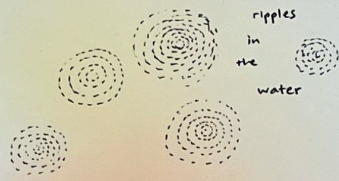 ripples
in
the
water